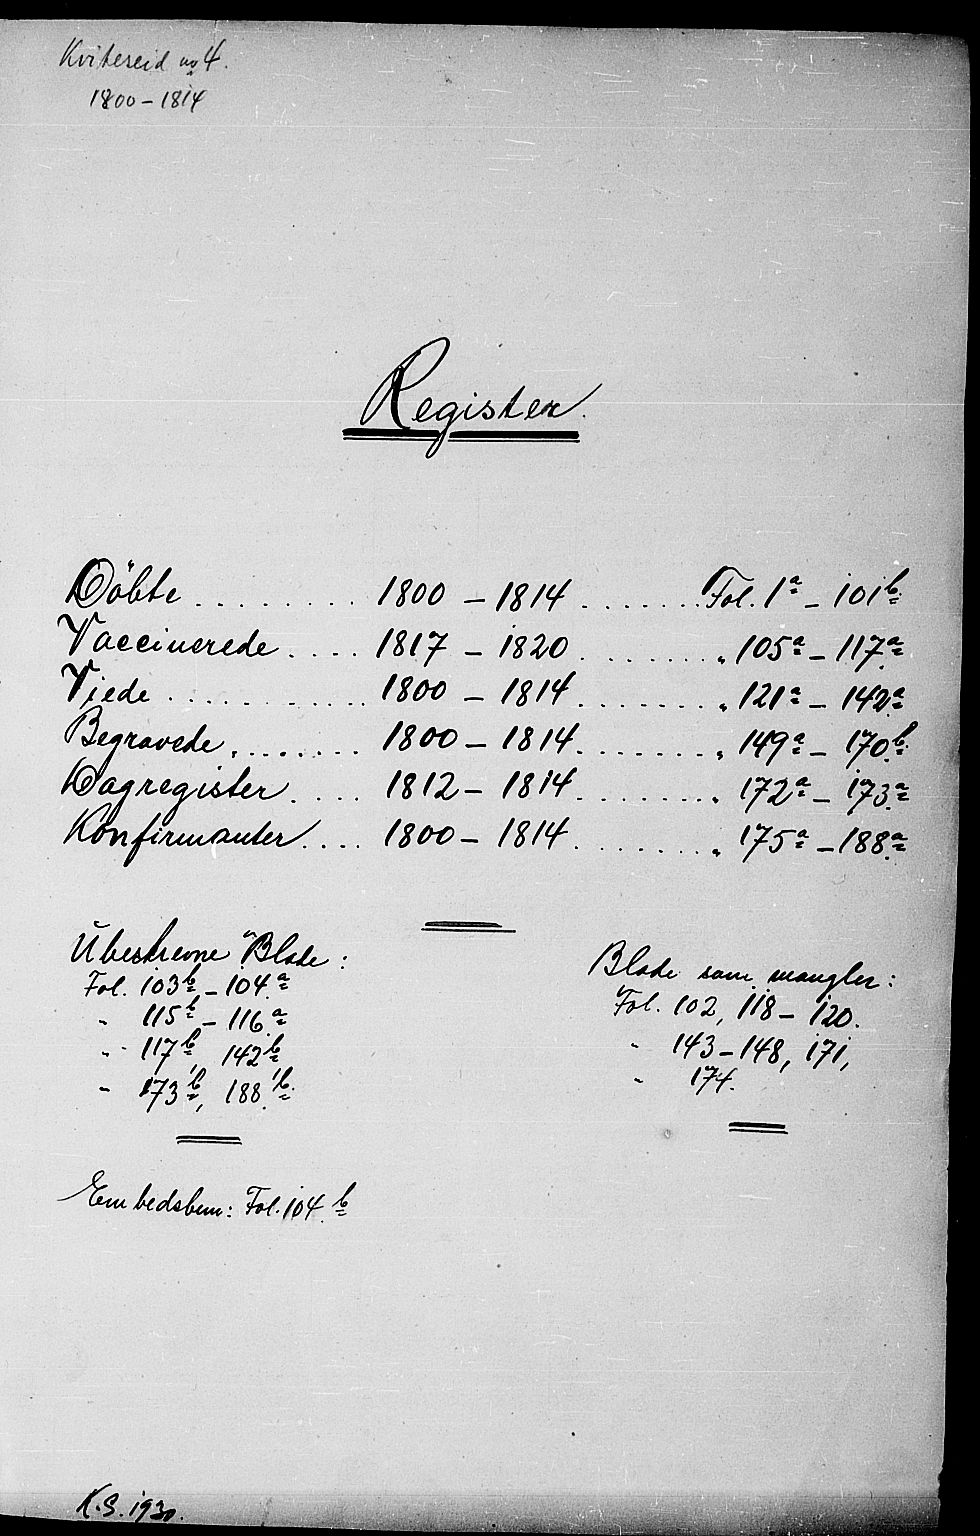 Kviteseid no 4.
1800 – 1814
Register.
Döbte ......... 1800 – 1814 ....... Fol. 1a – 101b
Vaccinerede .... 1817 – 1820 ........ „ 105a – 117a
Viede ............ 1800 – 1814 ........ „ 121a – 142a
Begravede ........ 1800 – 1814 ........ „ 149a – 170b
Dagregister .... 1812 – 1814 ........ „ 172a – 173a
Konfirmanter .... 1800 – 1814 ........ „ 175a – 188a
Ubeskrevne Blade:
Fol. 103b – 104a
„ 115b – 116a
„ 117b, 142b,
„ 173b, 188b.
Blade som mangler:
Fol. 102, 118 – 120.
„ 143 – 148, 171,
„ 174.
Embedsbem: Fol. 104b
K.S. 1930.